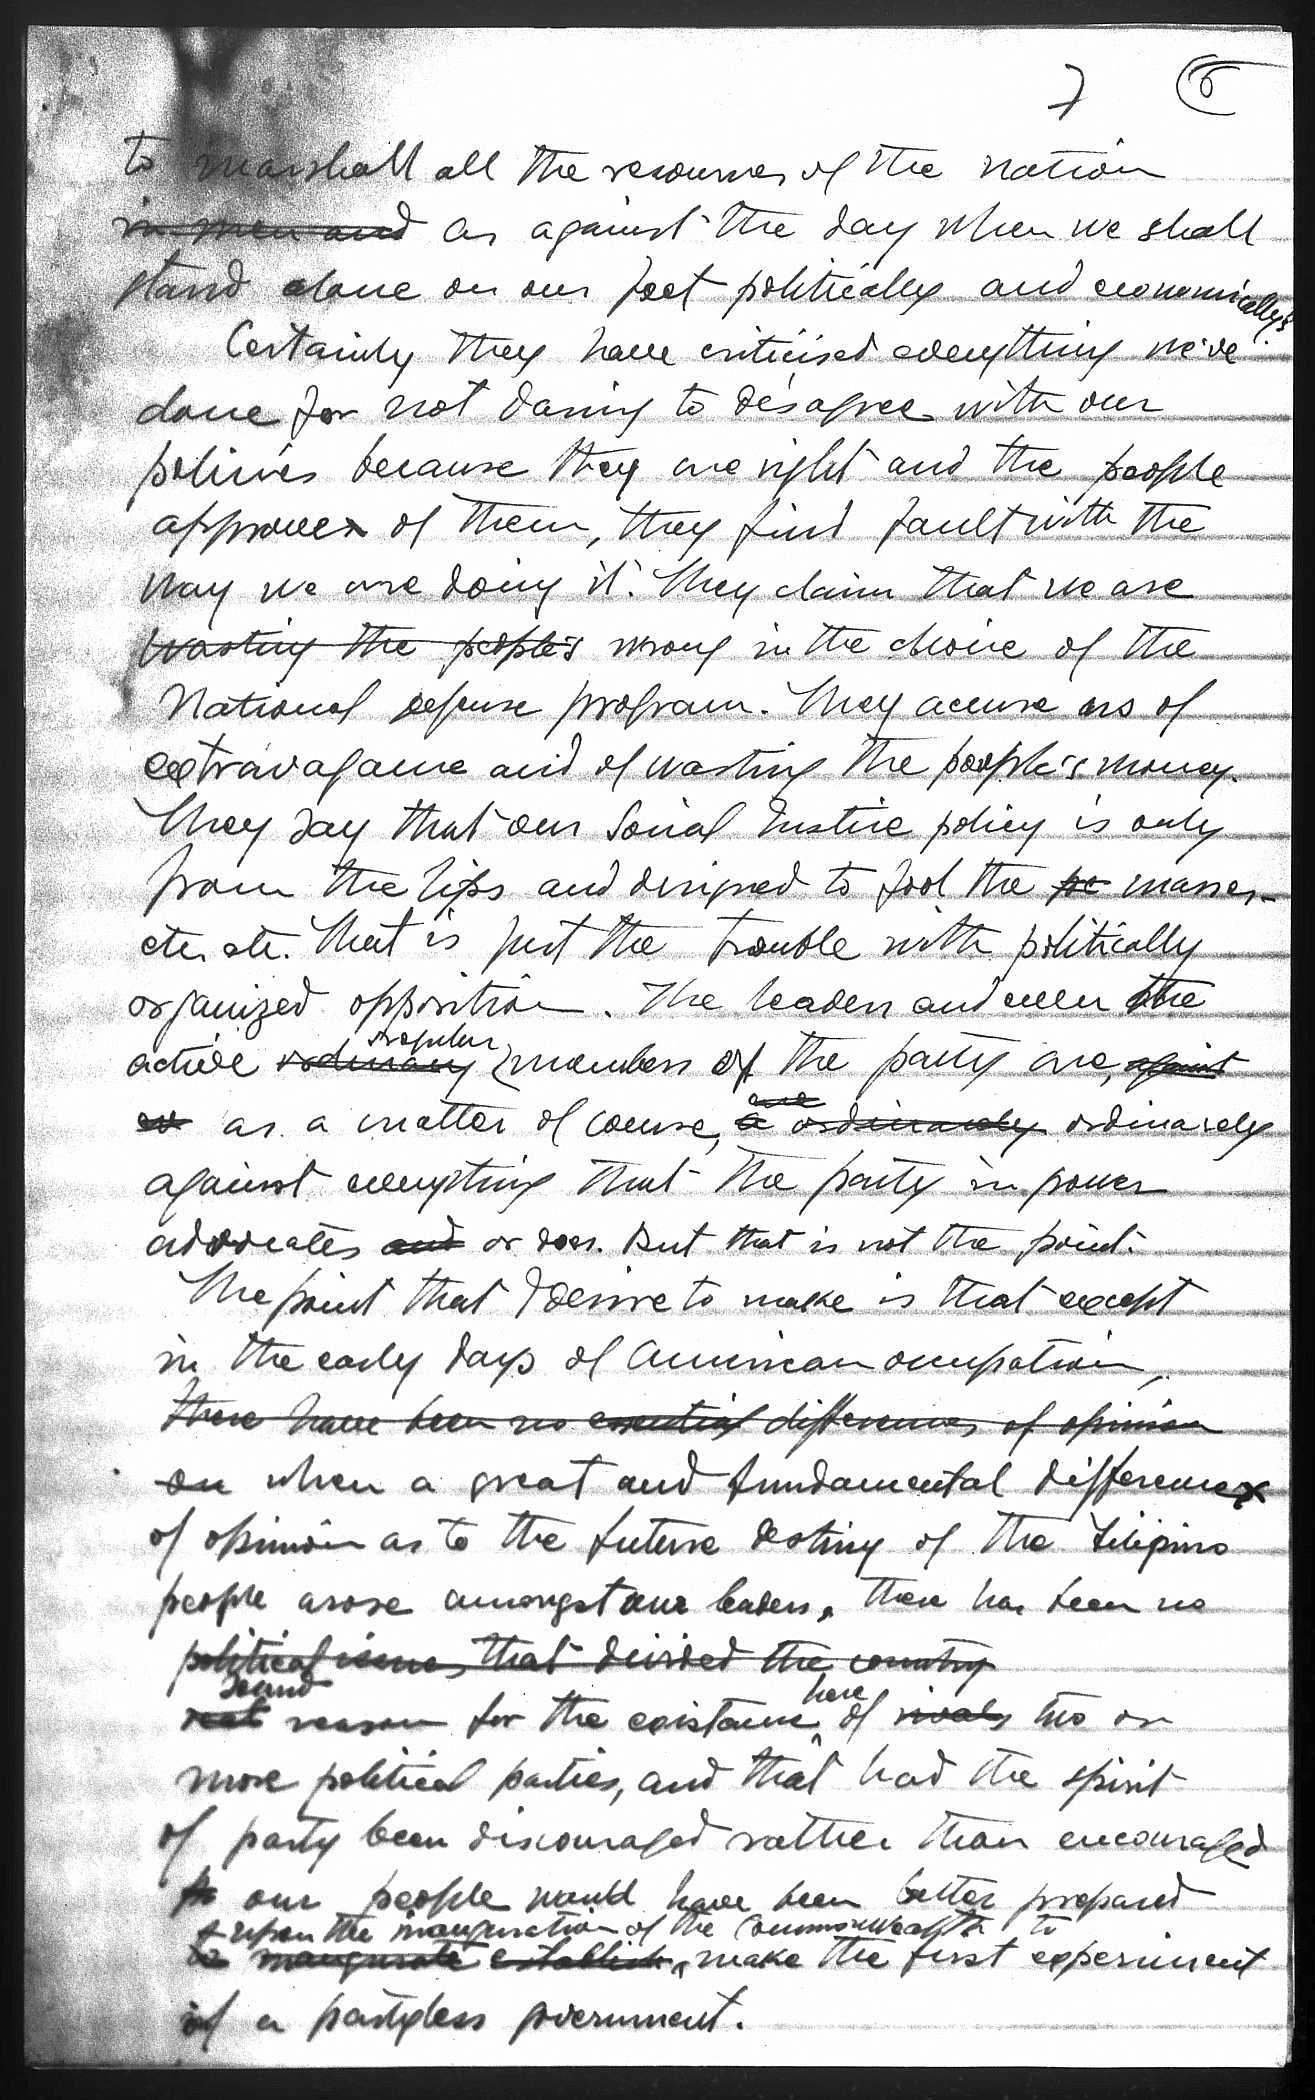 7 6
to marshall all the resources of the nation
in men and as against the day when we shall
stand alone on our feet politically and economically.
Certainly they have criticised everything we've
done for not daring to disagree with our
policies because they are right and the people
approve of them, they find fault with the
way we are doing it. They claim that we are
wasting the people's wrong in the choice of the
National defense program. They accuse us of
extravagance and of wasting the people's money.
They say that our Social Justice policy is only
from the lips and designed to fool the pe masses,
etc. etc. That is just the trouble with politically
organized opposition. The leaders and even the
popular
active ordinary members of the party are, against
as a matter of course, ordinarely ordinarely
against everything that the party in power
advocates and or does. But that is not the point.
The point that I desire to make is that except
in the early days of American occupation,
there have been no essential differences of opinion
on when a great and fundamental difference
of opinion as to the future destiny of the Filipino
people arose amongst our leaders, there has been no
political issues that divided the country
sound here
real reason for the existance of rivals two or
more political parties, and that had the spirit
of party been discouraged rather than encouraged
our people would have been better prepared
upon the inauguration of the Commonwealth to
to inaugurate establish make the first experiment
of a partyless government.